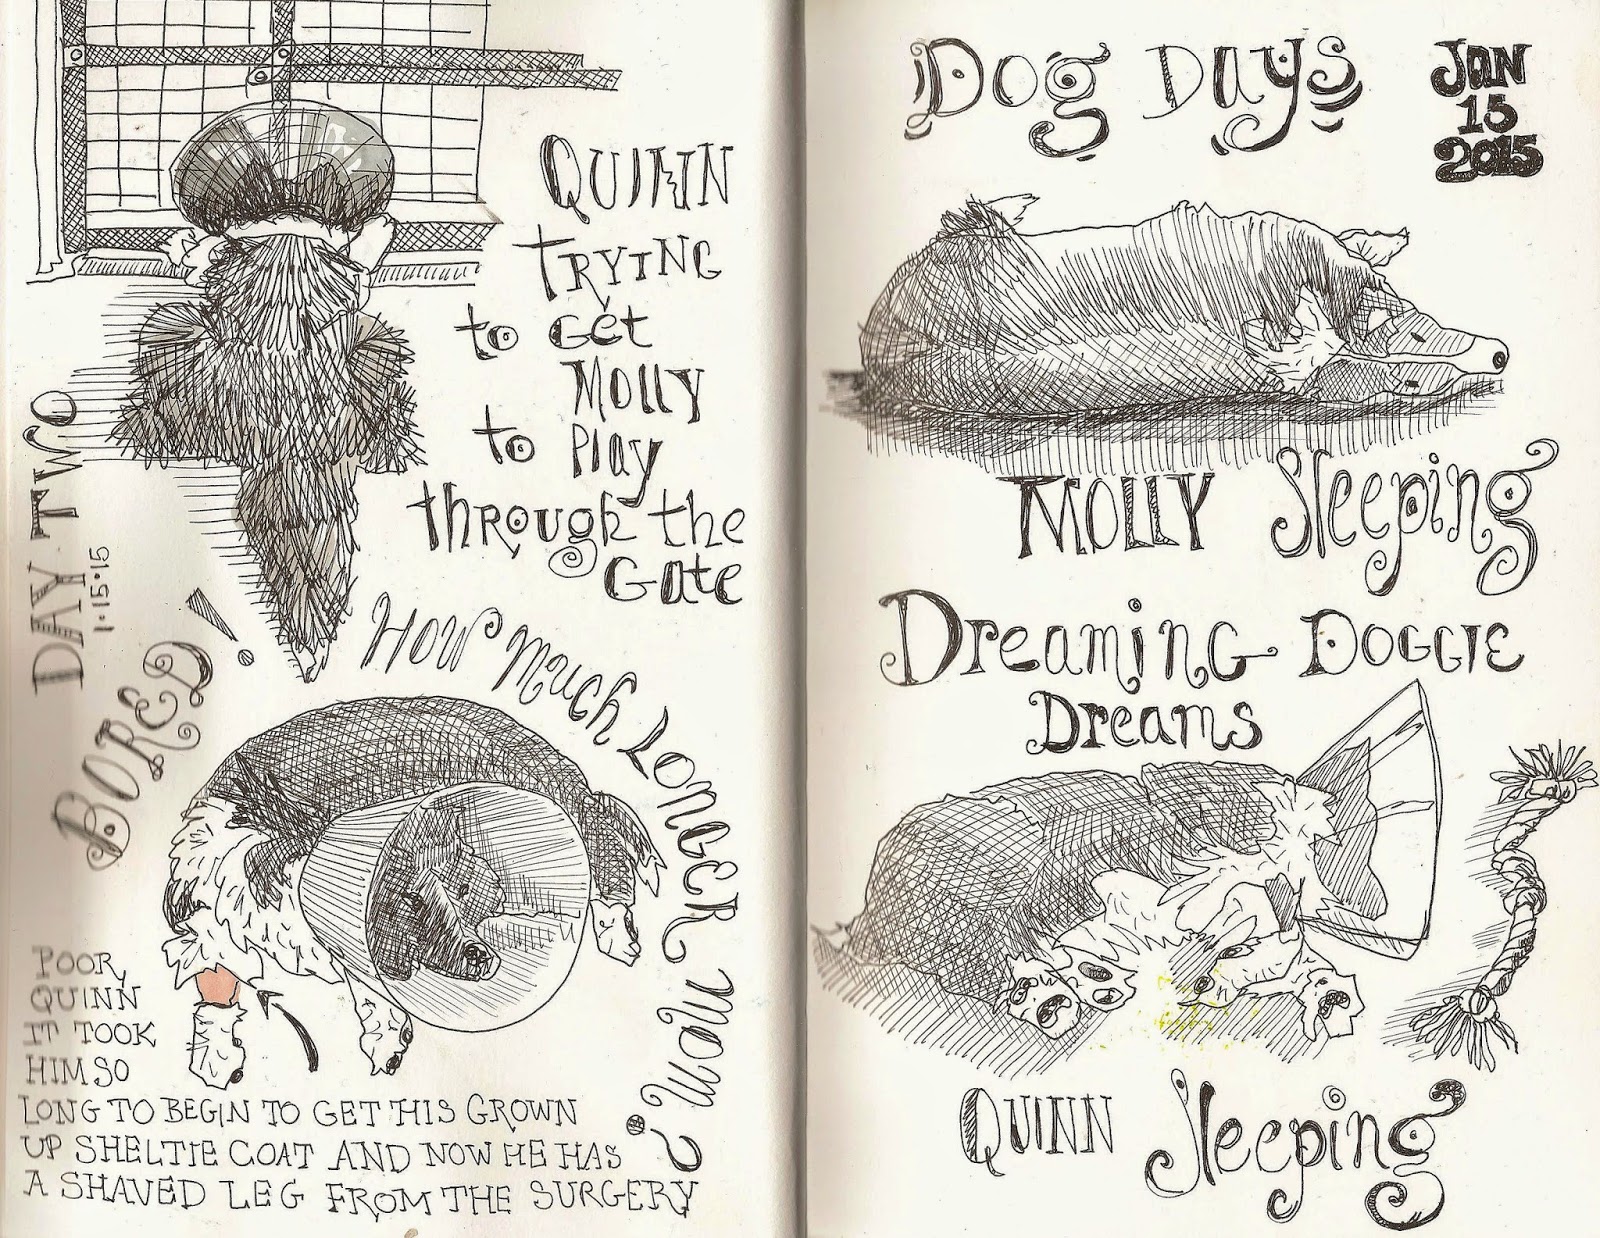 QUINN
TRYING
to Get
MOLLY
to Play
through the
Gate
DAY TWO
1·15·15
BORED!
How Much Longer Mom?
POOR
QUINN
IT TOOK
HIM SO
LONG TO BEGIN TO GET HIS GROWN
UP SHELTIE COAT AND NOW HE HAS
A SHAVED LEG FROM THE SURGERY
Dog Days
JAN
15
2015
MOLLY Sleeping
Dreaming Doggie
Dreams
QUINN Sleeping